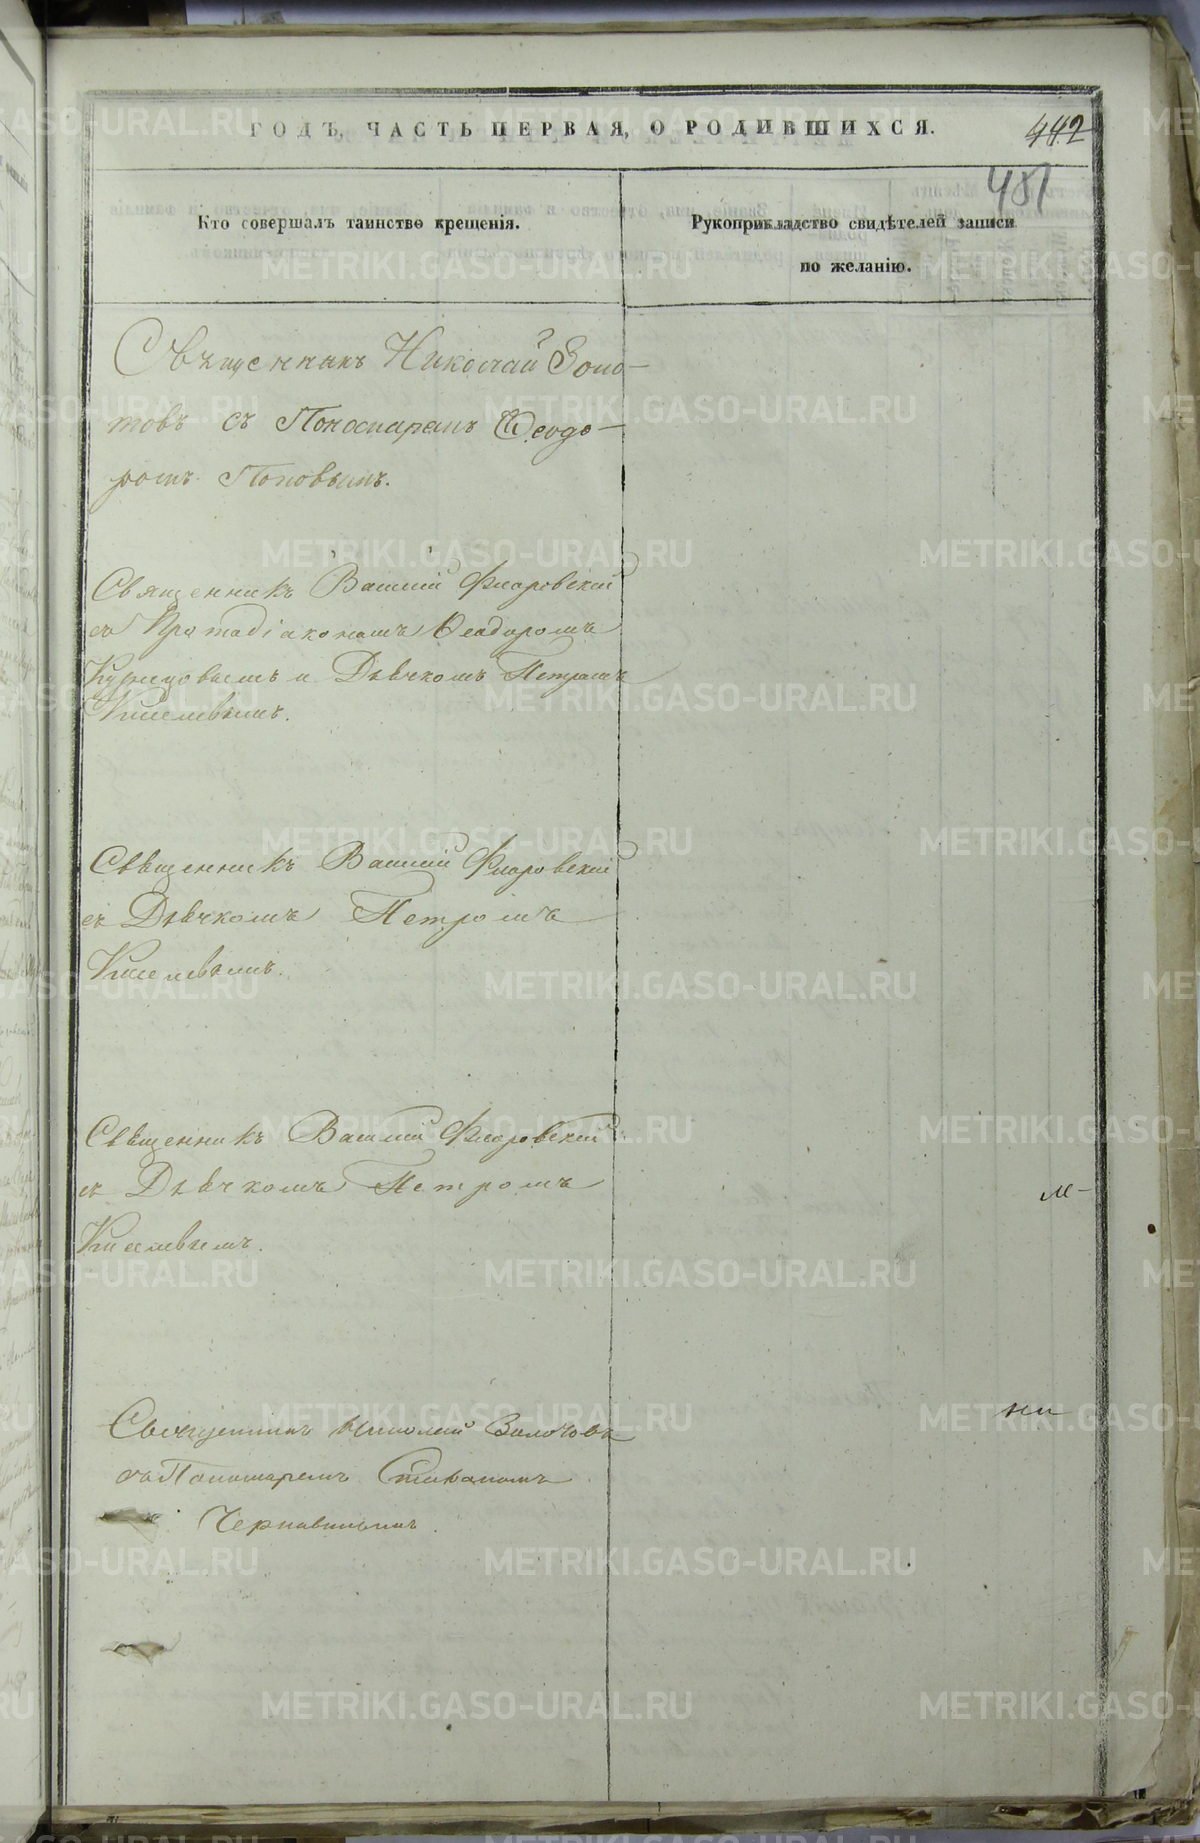 ГОДЪ, ЧАСТЬ ПЕРВАЯ, О РОДИВШИХСЯ.
442
481
Кто совершалъ таинство крещенія.
Рукоприкладство свидѣтелей записи
по желанію.
Священникъ Николай Золо-
товъ съ Пономаремъ Ѳеодо-
ромъ Поповымъ.
Священникъ Василій Флоровскій
съ Протодіакономъ Ѳеодоромъ
и Дьячкомъ Петромъ
Киселевымъ.
Священникъ Василій Флоровскій
съ Дьячкомъ Петромъ
Киселевымъ.
Священникъ Василій Флоровскій
съ Дьячкомъ Петромъ
Киселевымъ.
Священникъ Николай Золотовъ
съ Пономаремъ Стефаномъ
Чернавинымъ.
METRIKI.GASO-URAL.RU